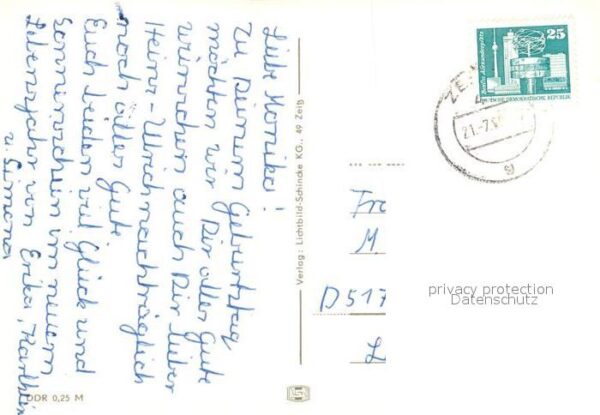 Liebe Monika!
Zu Deinem Geburtstag
möchten wir Dir alles Gute
wünschen auch Dir lieber
Heinz-Ulrich nachträglich
noch alles Gute
Euch beiden viel Glück und
Sonnenschein im neuen
Lebensjahr von Erika, Karlheinz
u. Simona
DDR 0,25 M
Verlag: Lichtbild-Schincke KG., 49 Zeitz
25
Berlin, Alexanderplatz
DEUTSCHE DEMOKRATISCHE REPUBLIK
21.-7.
Fr
M.
D 517
L
privacy protection
Datenschutz